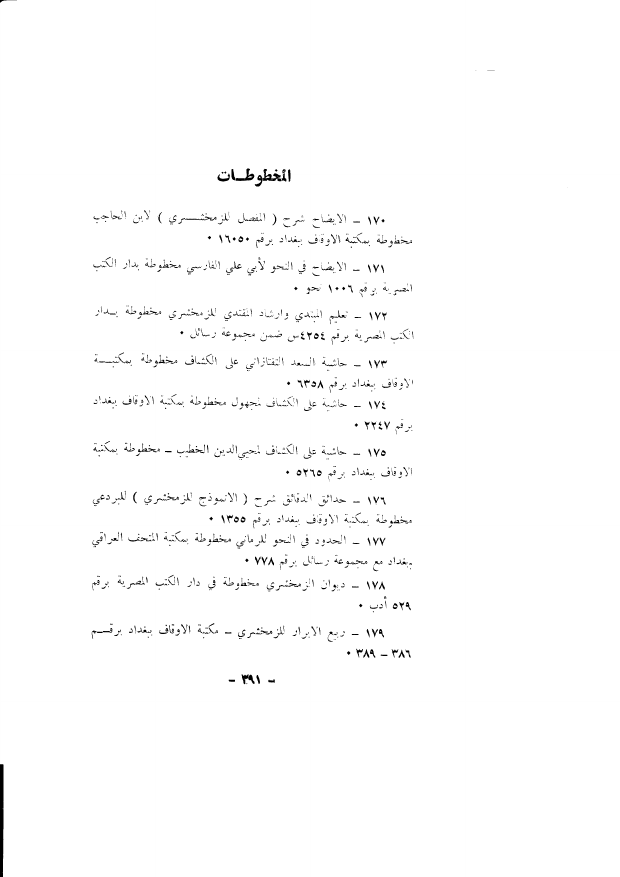 المخطوطــات
١٧٠ ــ الايضاح شرح ( المفصل للزمخشــــري ) لابن الحاجب
مخطوطة بمكتبة الاوقاف ببغداد برقم ١٦٠٥٠ ٠
١٧١ ــ الايضاح في النحو لأبي علي الفارسي مخطوطة بدار الكتب
المصرية برقم ١٠٠٦ نحو ٠
١٧٢ ــ تعليم المبتدي وارشاد المقتدي للزمخشري مخطوطة بــدار
الكتب المصرية برقم ٤٢٥٤س ضمن مجموعة رسائل ٠
١٧٣ ــ حاشية السعد التفتازاني على الكشاف مخطوطة بمكتبـــة
الاوقاف ببغداد برقم ٦٣٥٨ ٠
١٧٤ ــ حاشية على الكشاف لمجهول مخطوطة بمكتبة الاوقاف ببغداد
برقم ٢٢٤٧ ٠
١٧٥ ــ حاشية على الكشاف لمحيي‌الدين الخطيب ــ مخطوطة بمكتبة
الاوقاف ببغداد برقم ٥٢٦٥ ٠
١٧٦ ــ حدائق الدقائق شرح ( الانموذج للزمخشري ) للبردعي
مخطوطة بمكتبة الاوقاف ببغداد برقم ١٣٥٥ ٠
١٧٧ ــ الحدود في النحو للرماني مخطوطة بمكتبة المتحف العراقي
ببغداد مع مجموعة رسائل برقم ٧٧٨ ٠
١٧٨ ــ ديوان الزمخشري مخطوطة في دار الكتب المصرية برقم
٥٢٩ أدب ٠
١٧٩ ــ ربيع الابرار للزمخشري ــ مكتبة الاوقاف ببغداد برقــم
٣٨٦ ــ ٣٨٩ ٠
ــ ٣٩١ ــ